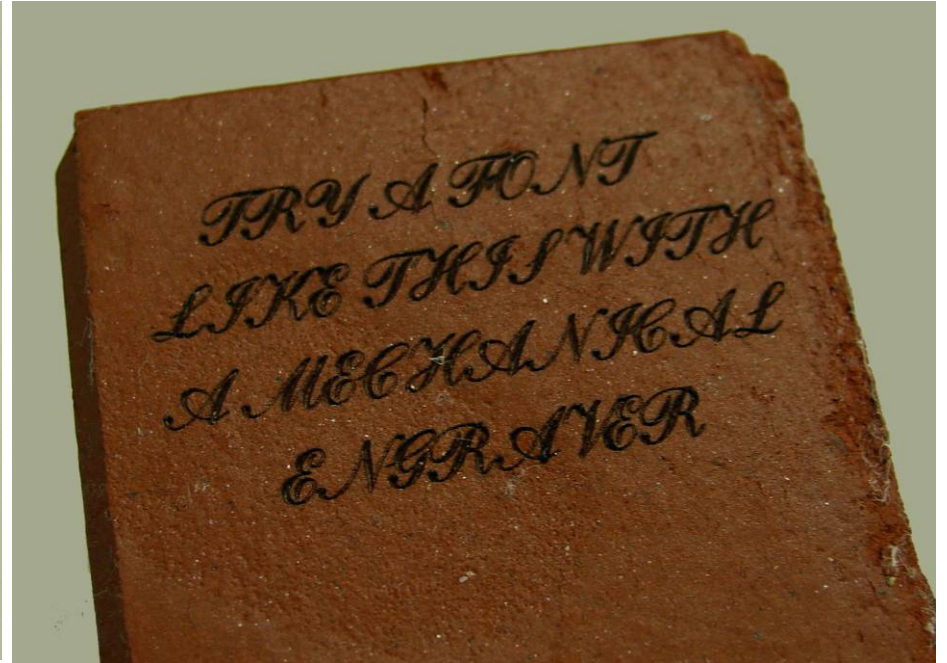 TRY A FONT
LIKE THIS WITH
A MECHANICAL
ENGRAVER